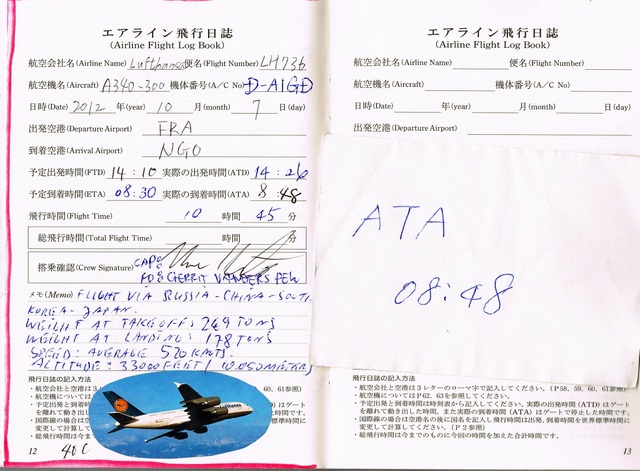 エアライン飛行日誌
(Airline Flight Log Book)
航空会社名(Airline Name) Lufthansa 便名(Flight Number) LH736
航空機名(Aircraft) A340-300 機体番号(A/C No) D-AIGD
日時(Date) 2012 年(year) 10 月(month) 7 日(day)
出発空港(Departure Airport) FRA
到着空港(Arrival Airport) NGO
予定出発時間(FTD) 14:10 実際の出発時間(ATD) 14:26
予定到着時間(ETA) 08:30 実際の到着時間(ATA) 8:48
飛行時間(Flight Time) 10 時間 45 分
総飛行時間(Total Flight Time) 時間 分
搭乗確認(Crew Signature) CAP:
FO: GERRIT
メモ(Memo) FLIGHT VIA RUSSIA-CHINA-SOUTH
KOREA-JAPAN.
WEIGHT AT TAKEOFF: 249 TONS
WEIGHT AT LANDING: 178 TONS
SPEED: AVERAGE 520 KNOTS.
ALTITUDE: 33000 FEET/ (10.050 METERS)
飛行日誌の記入方法
・航空会社と空港は3
60、61参照)
・航空機については
・予定出発と到着時間
)はゲート
を離れて動き出し
した時間です。
・国際線の場合は空
世界標準時間に
変更して計算して
・総飛行時間は今ま
時間です。
Lufthansa
12
40C
エアライン飛行日誌
(Airline Flight Log Book)
航空会社名(Airline Name) 便名(Flight Number)
航空機名(Aircraft) 機体番号(A/C No)
日時(Date) 年(year) 月(month) 日(day)
出発空港(Departure Airport)
ATA
08:48
飛行日誌の記入方法
・航空会社と空港は3レターのローマ字で記入してください。(P58、59、60、61参照)
・航空機についてはP62、63を参照してください。
・予定出発と到着時間は時刻表から記入してください。実際の出発時間(ATD)はゲート
を離れて動き出した時間、また実際の到着時間(ATA)はゲートで停止した時間です。
・国際線の場合は空港名の後に国名を記入し飛行時間は出発、到着時間を世界標準時間に
変更して計算してください。(P2参照)
・総飛行時間は今までのものに今回の時間を加えた合計時間です。
13